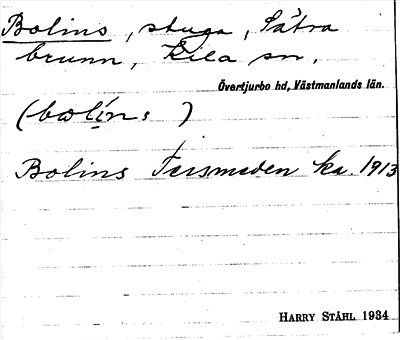 Bolins, stuga, Sätra
brunn, Kila sn,
Övertjurbo hd, Västmanlands län.
(bωlín:s)
Bolins Tersmeden ka. 1913
HARRY STÅHL 1934